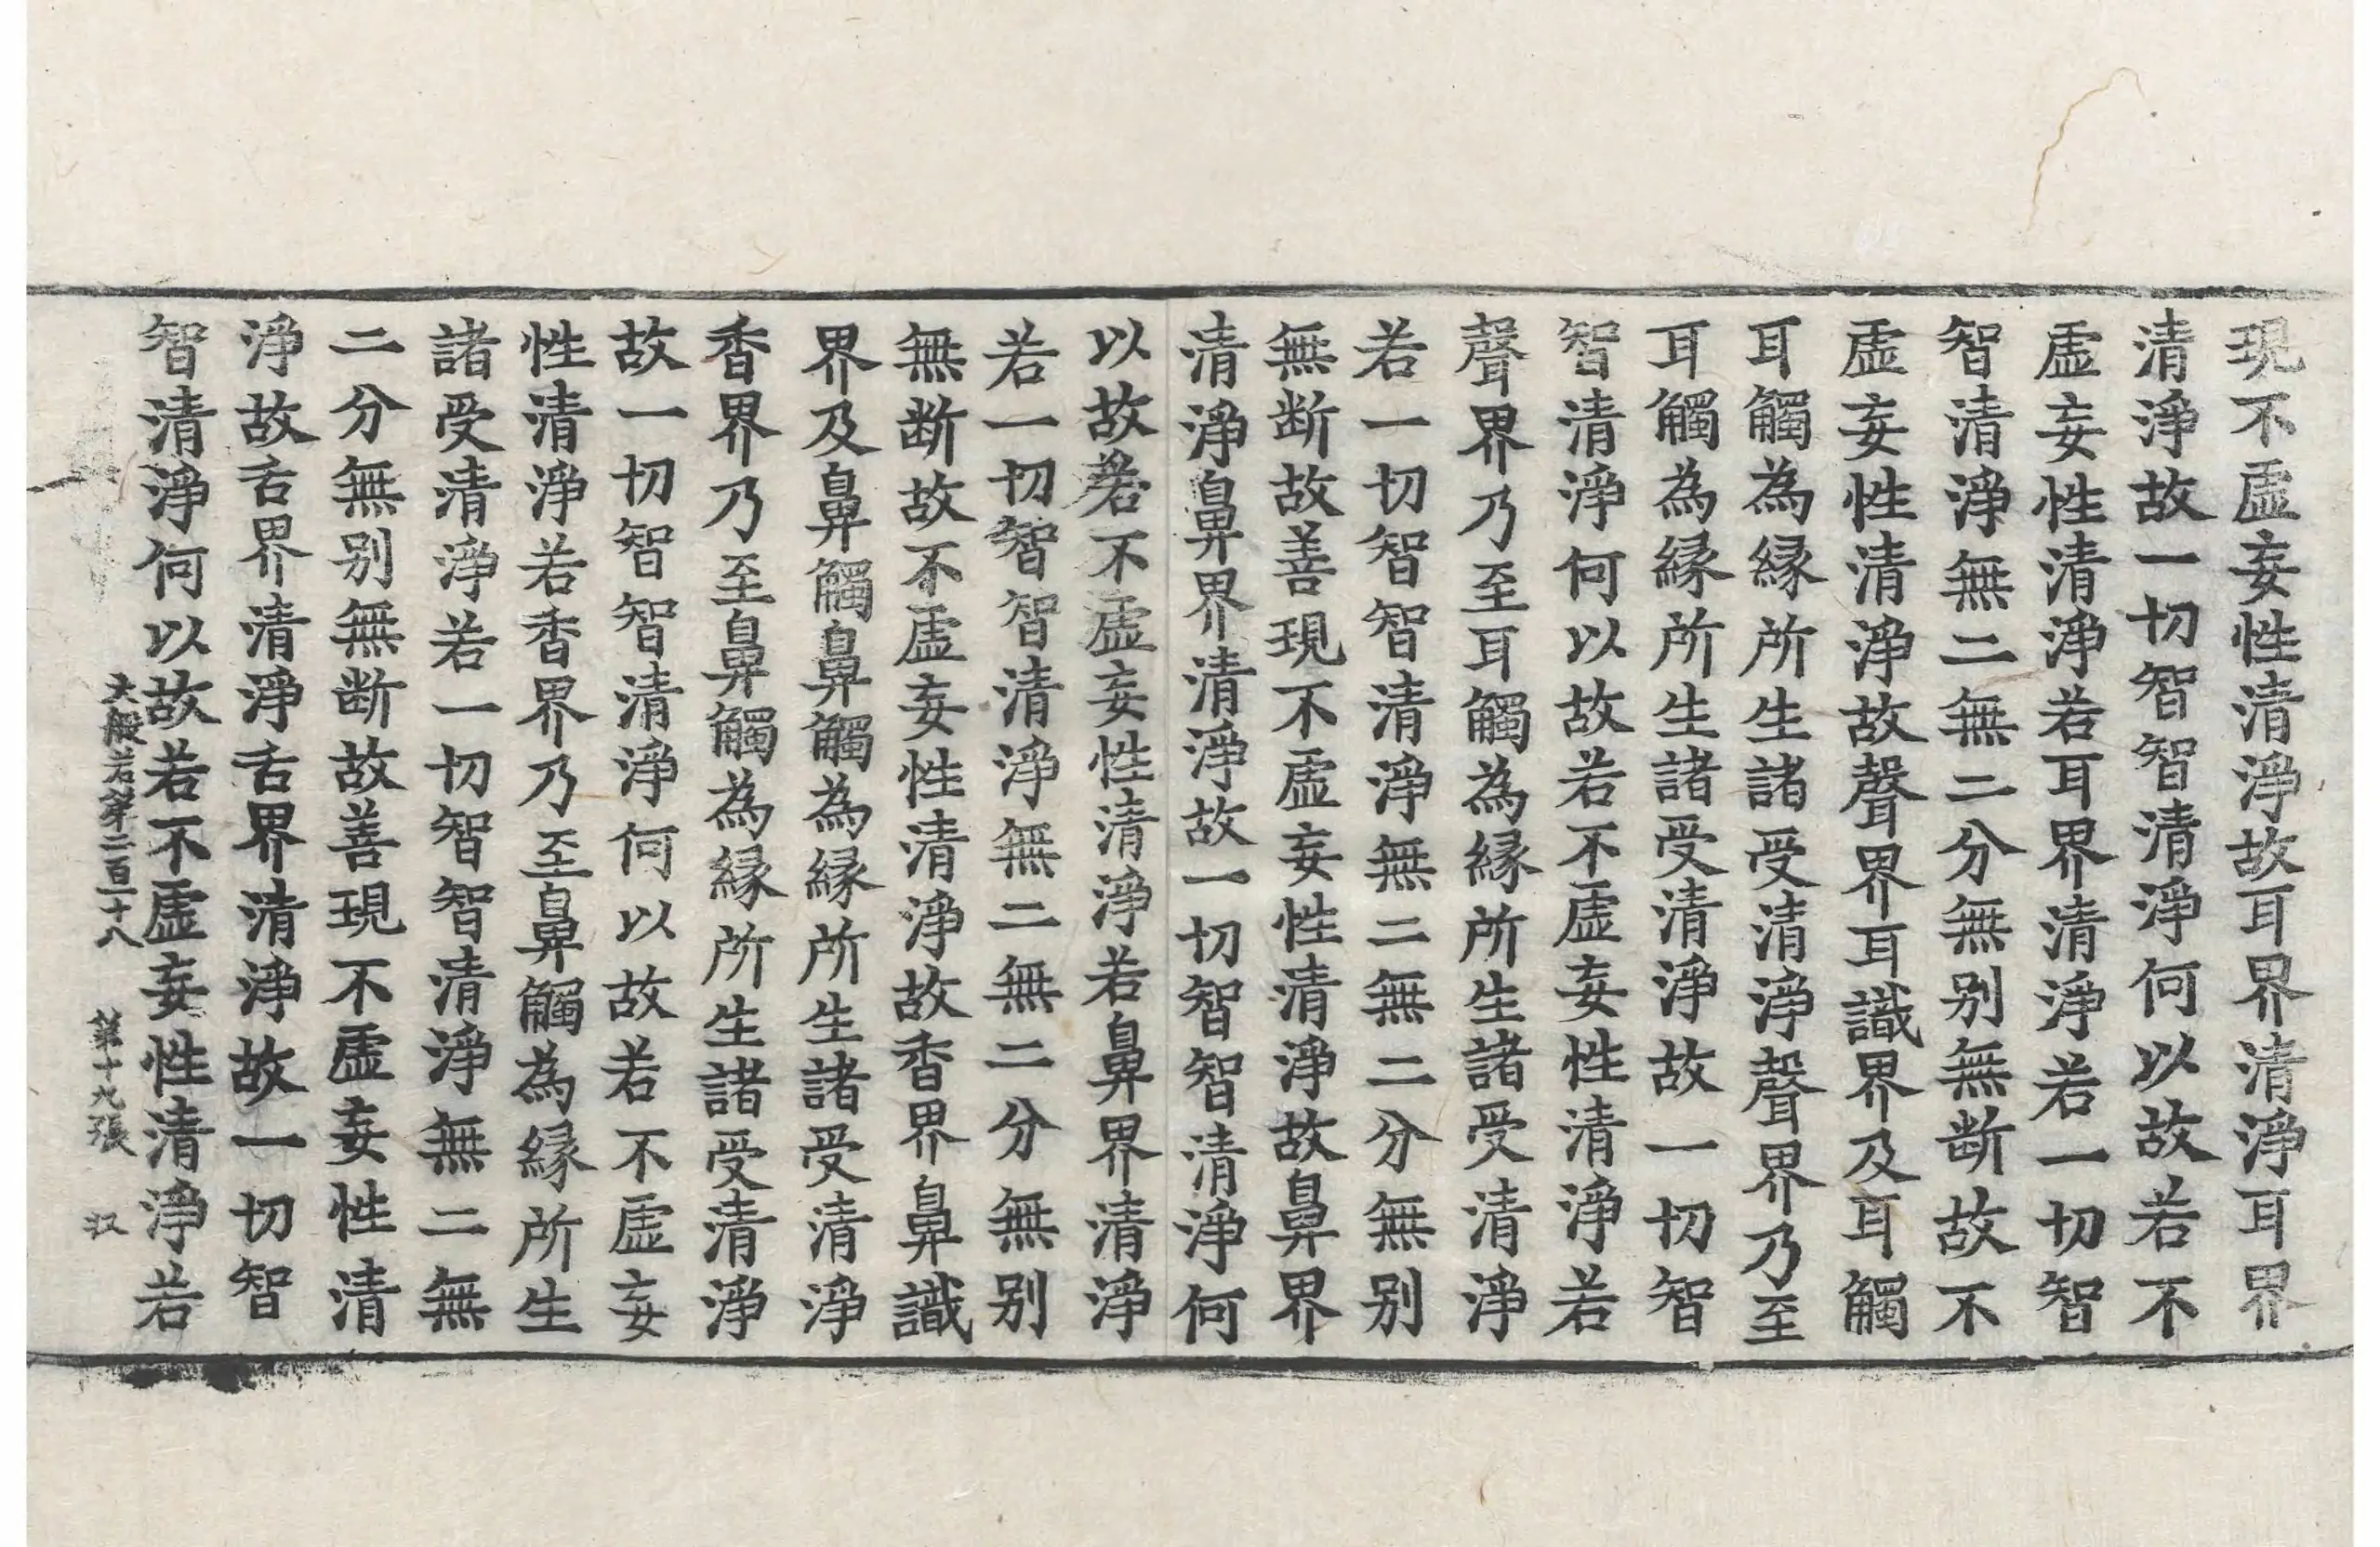 現不虛妄性清淨故耳界清淨耳界
清淨故一切智智清淨何以故若不
虛妄性清淨若耳界清淨若一切智
智清淨無二無二分無别無断故不
虛妄性清淨故聲界耳識界及耳觸
耳觸為緣所生諸受清淨聲界乃至
耳觸為緣所生諸受清淨故一切智
智清淨何以故若不虛妄性清淨若
聲界乃至耳觸為緣所生諸受清淨
若一切智智清淨無二無二分無别
無断故善現不虛妄性清淨故鼻界
清淨鼻界清淨故一切智智清淨何
以故若不虛妄性清淨若鼻界清淨
若一切智智清淨無二無二分無别
無断故不虛妄性清淨故香界鼻識
界及鼻觸鼻觸為緣所生諸受清淨
香界乃至鼻觸為緣所生諸受清淨
故一切智智清淨何以故若不虛妄
性清淨若香界乃至鼻觸為緣所生
諸受清淨若一切智智清淨無二無
二分無别無断故善現不虛妄性清
淨故舌界清淨舌界清淨故一切智
智清淨何以故若不虛妄性清淨若
大般若第二百二十八 第十九張